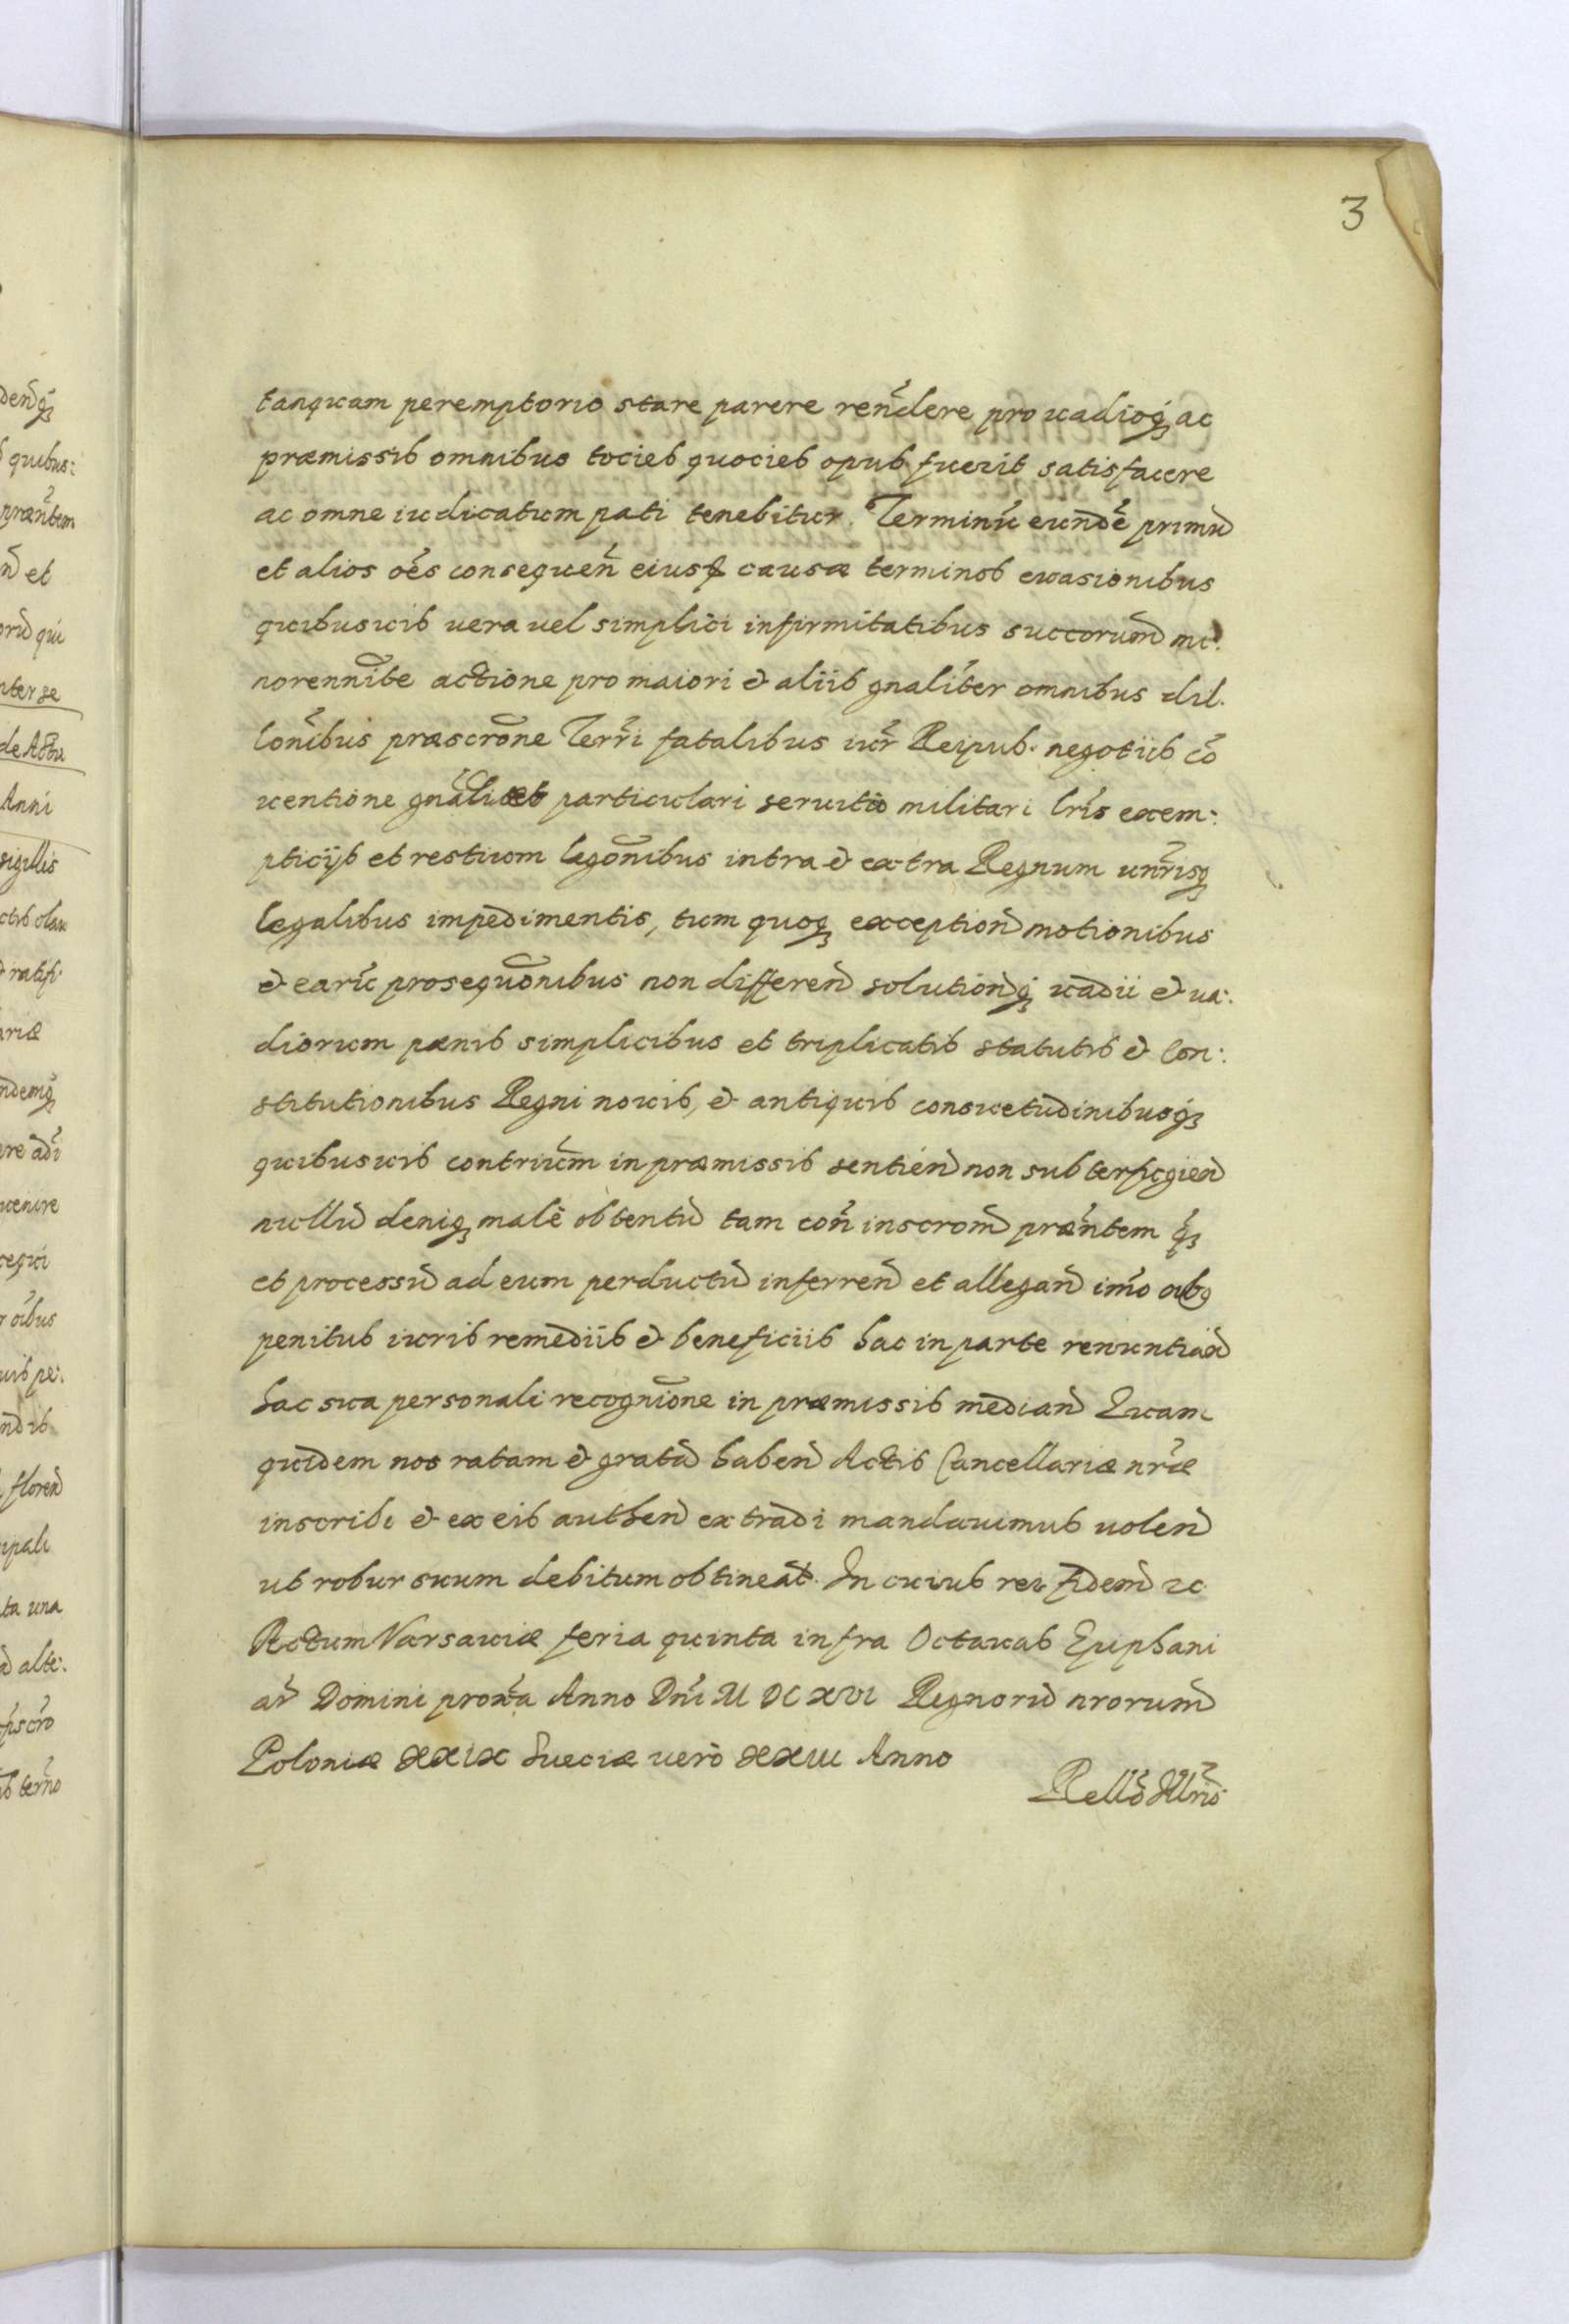 3
tanquam peremptorio stare parere reñdere pro vadioq́ʒ ac
præmissis omnibus tocies quocies opus fuerit satisfacere
ac omne iudicatum pati tenebitur. Terminũ eundẽ primũ
et alios oẽs consequeñ eiusq̃ causæ terminos euasionibus
quibusuis uera uel simplici infirmitatibus succorum̃ mi:
norenniṫe actione pro maiori & aliis gnaliter omnibus dil:
lõnibus præscrõne Terri fatalibus iur̃ Reipub. negotiis cõ
uentione gnãli et particulari seruitio militari lr̃is exem:
pticijs et restium legõnibus intra & extra Regnum unr̃isqʒ
legalibus impedimentis, tum quoqʒ exception̄ motionibus
& earũ prosequõnibus non differen̄ solution̄qʒ uadii & ua:
diorum pænis simplicibus et triplicatis statutis & Con:
stitutionibus Regni nouis, & antiquis consuetudinibusq́ʒ
quibusuis contrium̃ in præmissis sentien̄ non subterfugien̄
nullũ deniqʒ malè obtentũ tam coñ inscrom̃ præñtem q̃ʒ
et processũ ad eum perductũ inferren̄ et allegan̄ imõ
penitus iuris remediis & beneficiis hac in parte renuntian̄
hac sua personali recognĩone in præmissis median̄ Quam
quidem nos ratam & gratã haben̄ Actis Cancellariæ nr̃æ
inscribi & ex eis authen̄ extradi mandauimus uolen̄
ut robur suum debitum obtineãt. In cuius rei fidem̃ ꝛc.
Actum Varsauiæ feria quinta infra Octauas Epiphani
ar̃ Domini proxĩa Anno Dñi M DC XVI Regnorũ nrorum̃
Poloniæ XXIX Sueciæ uerò XXIII Anno
Rellõ